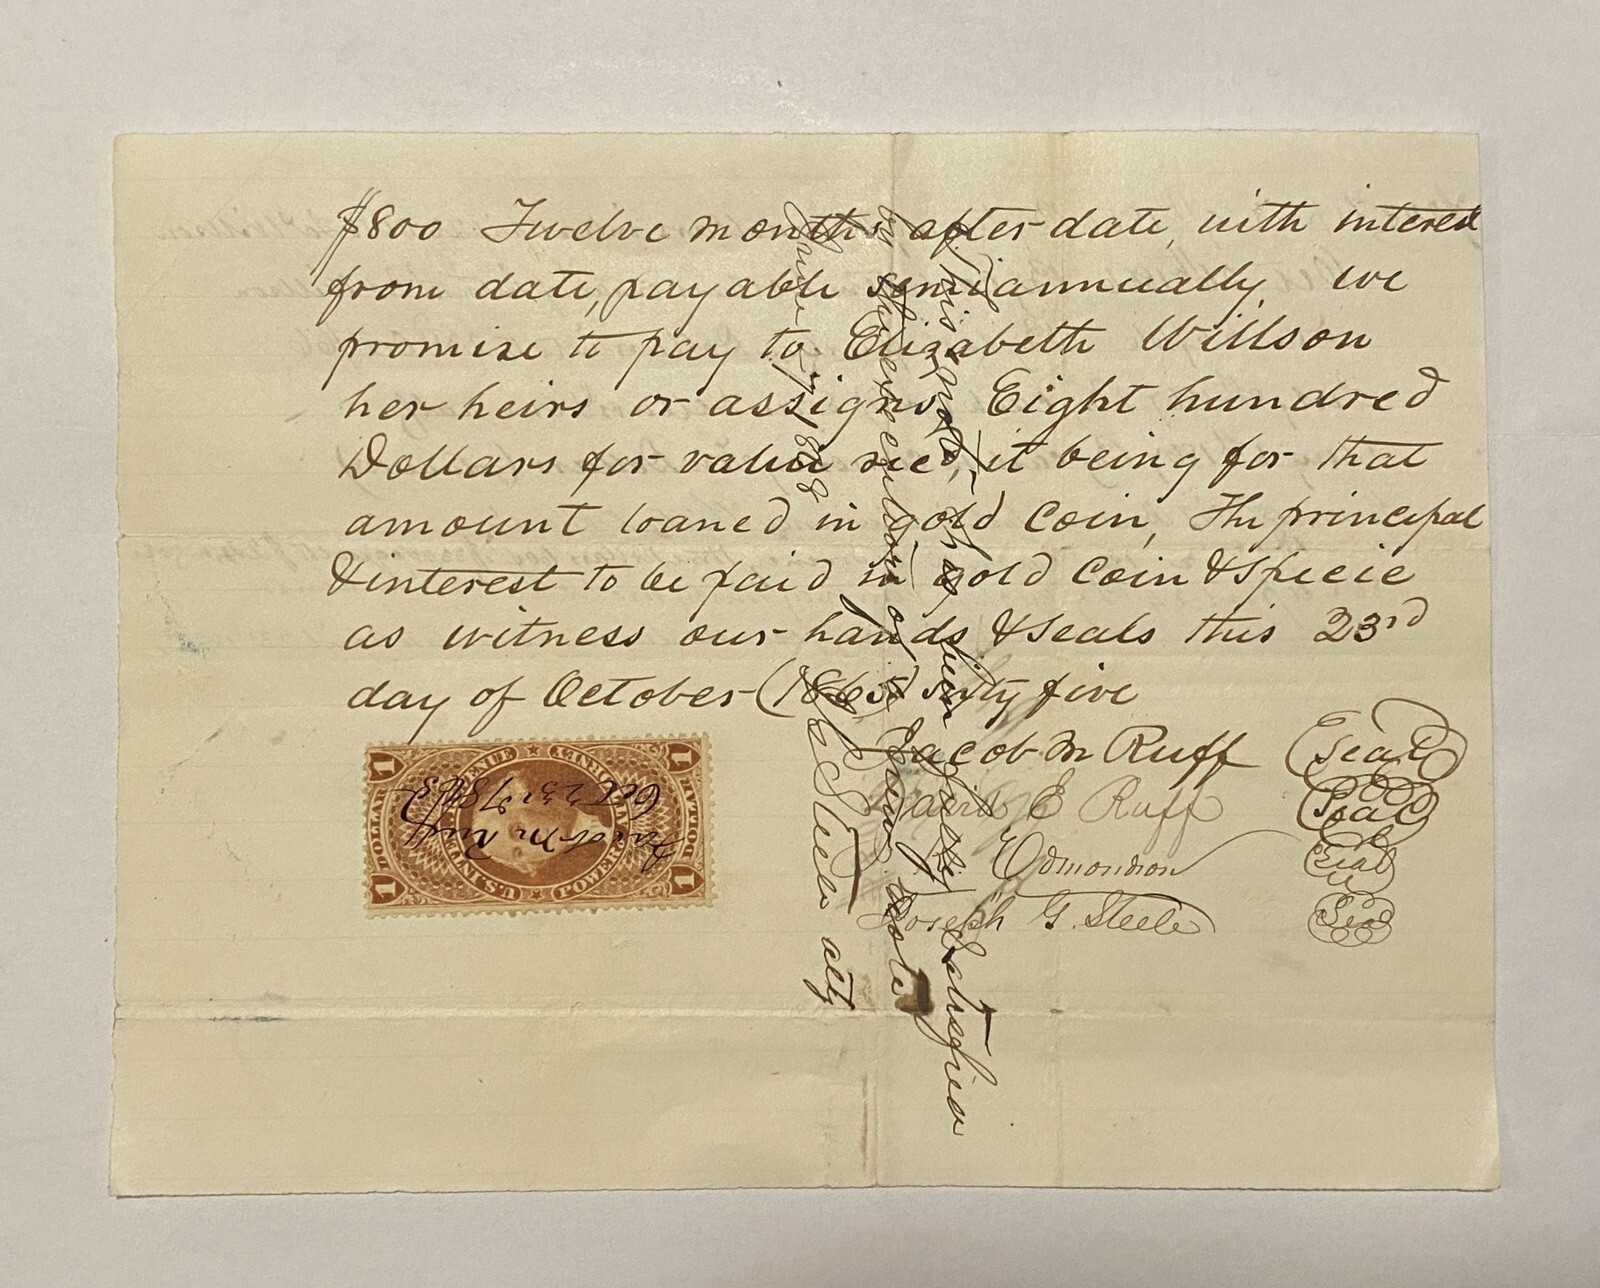 $800 Twelve months after date, with interest
from date, payable semiannually, we
promise to pay to Elizabeth Willson
her heirs or assigns, Eight hundred
Dollars for value recd, it being for that
amount loaned in gold coin, The principal
& interest to be paid in gold coin & specie
as witness our hands & seals this 23rd
day of October (1865) sixty five
Jacob M Ruff (Seal)
David E Ruff (Seal)
Edmondson (Seal)
Joseph G. Steele (Seal)
this note has been fully satisfied
by the executors of given note
June 1, 188
Steele atty
U.S. INTER. REVENUE
POWER OF ATTORNEY
1 DOLLAR 1
1 DOLLAR 1
Jacob M Ruff
Oct 23rd 1865